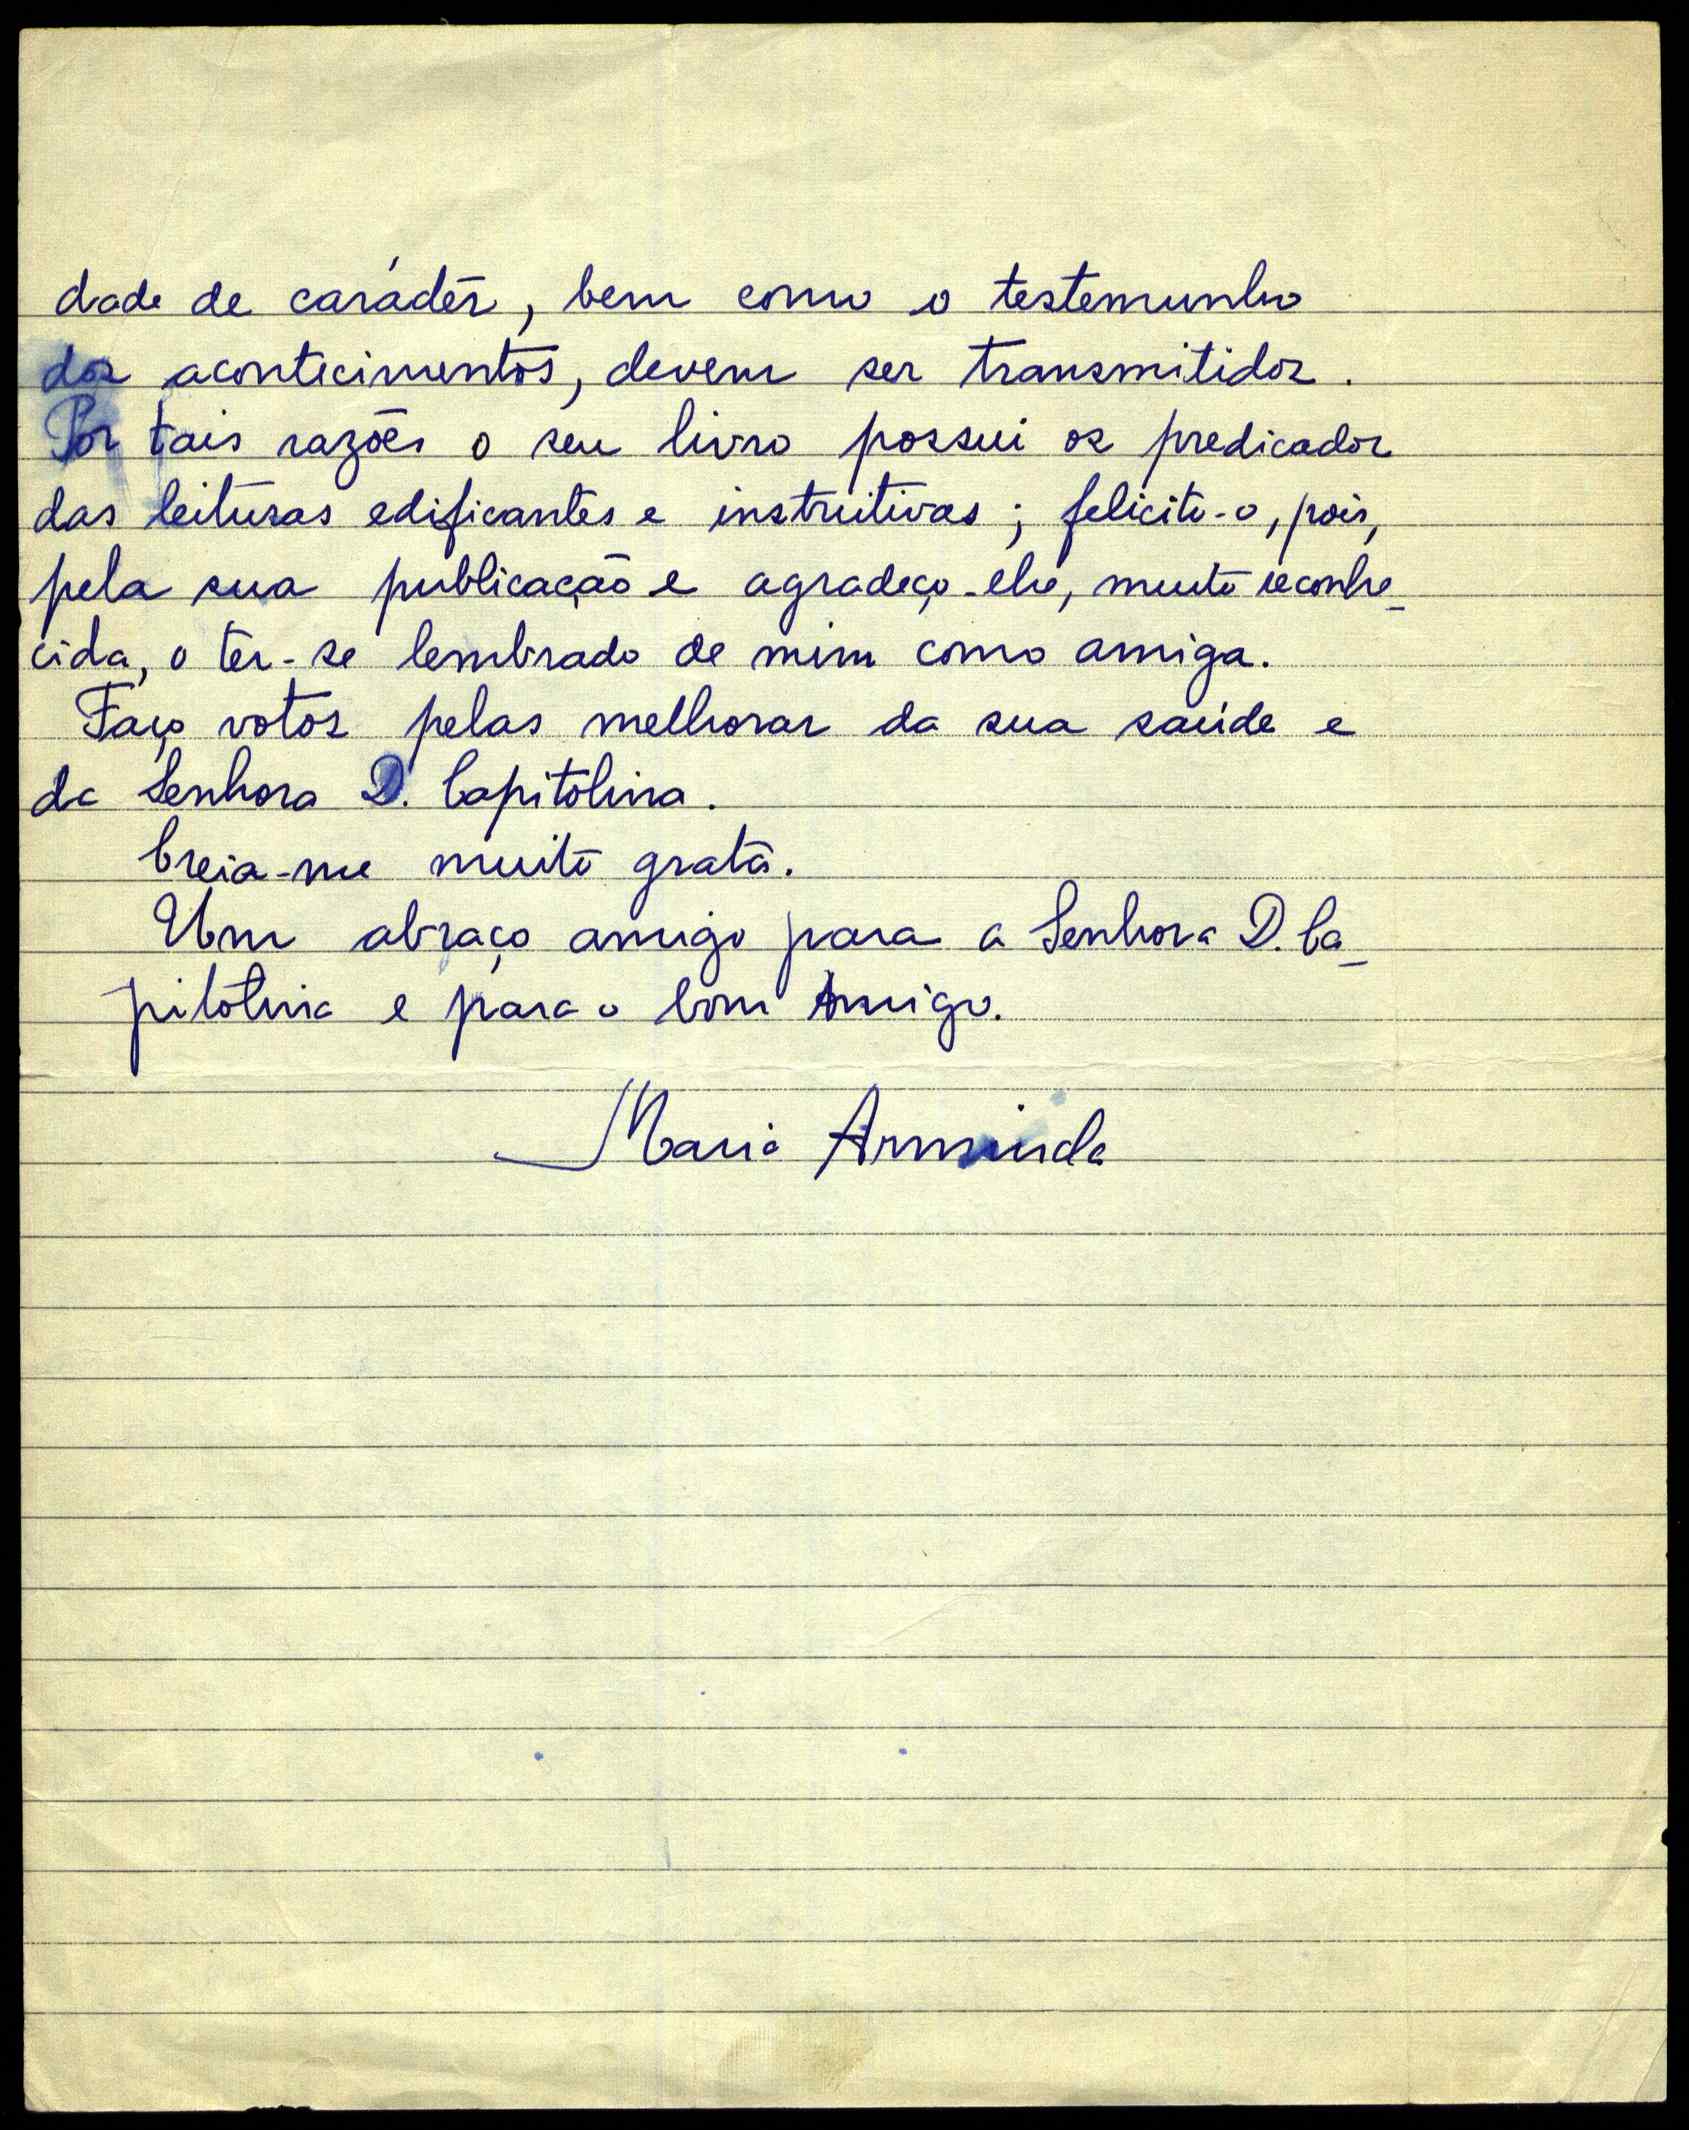 dade de carácter, bem como o testemunho
dos acontecimentos, devem ser transmitidos.
Por tais razões o seu livro possui os predicados
das leituras edificantes e instrutivas; felicito-o, pois,
pela sua publicação e agradeço-lhe, muito reconhe-
cida, o ter-se lembrado de mim como amiga.
Faço votos pelas melhoras da sua saúde e
da Senhora D. Capitolina.
Creia-me muito grata.
Um abraço amigo para a Senhora D. Ca-
pitolina e para o bom Amigo.
Maria Arminda